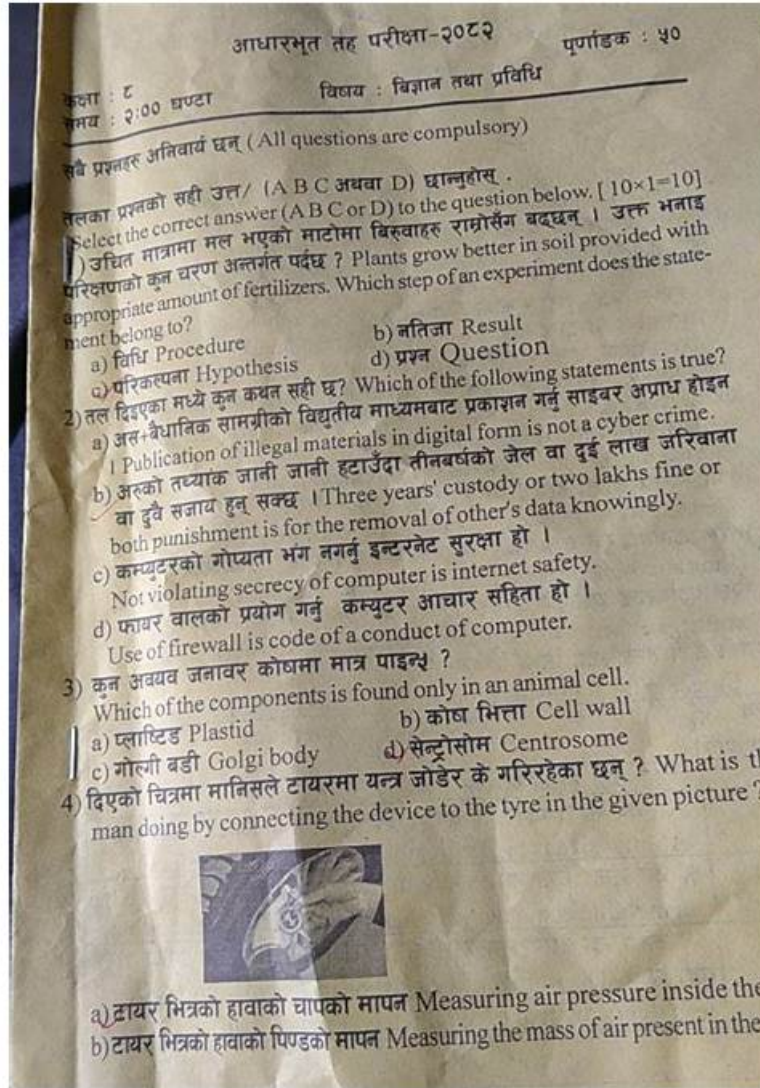 आधारभूत तह परीक्षा-२०८२
पूर्णाङक : ५०
कक्षा : ८
समय : २:०० घण्टा
विषय : बिज्ञान तथा प्रविधि
सबै प्रश्नहरु अनिवार्य छन् ( All questions are compulsory)
तलका प्रश्नको सही उत्त/ (A B C अथवा D) छान्नुहोस् .
Select the correct answer (A B C or D) to the question below. [ 10×1=10]
) उचित मात्रामा मल भएको माटोमा बिरुवाहरु राम्रोसँग बढ्छन् । उक्त भनाइ
परिक्षणको कुन चरण अन्तर्गत पर्दछ ? Plants grow better in soil provided with
appropriate amount of fertilizers. Which step of an experiment does the state-
ment belong to?
a) विधि Procedure b) नतिजा Result
c) परिकल्पना Hypothesis d) प्रश्न Question
2) तल दिइएका मध्ये कुन कथन सही छ? Which of the following statements is true?
a) अस+बैधानिक सामग्रीको विद्युतीय माध्यमबाट प्रकाशन गर्नु साइबर अप्राध होइन
। Publication of illegal materials in digital form is not a cyber crime.
b) अरुको तथ्यांक जानी जानी हटाउँदा तीनबर्षको जेल वा दुई लाख जरिवाना
वा दुवै सजाय हुन् सक्छ । Three years' custody or two lakhs fine or
both punishment is for the removal of other's data knowingly.
c) कम्प्युटरको गोप्यता भंग नगर्नु इन्टरनेट सुरक्षा हो ।
Not violating secrecy of computer is internet safety.
d) फायर वालको प्रयोग गर्नु कम्युटर आचार सहिता हो ।
Use of firewall is code of a conduct of computer.
3) कुन अवयव जनावर कोषमा मात्र पाइन्छ ?
Which of the components is found only in an animal cell.
a) प्लाष्टिड Plastid b) कोष भित्ता Cell wall
c) गोल्गी बडी Golgi body d) सेन्ट्रोसोम Centrosome
4) दिएको चित्रमा मानिसले टायरमा यन्त्र जोडेर के गरिरहेका छन् ? What is th
man doing by connecting the device to the tyre in the given picture ?
a) टायर भित्रको हावाको चापको मापन Measuring air pressure inside the
b) टायर भित्रको हावाको पिण्डको मापन Measuring the mass of air present in the